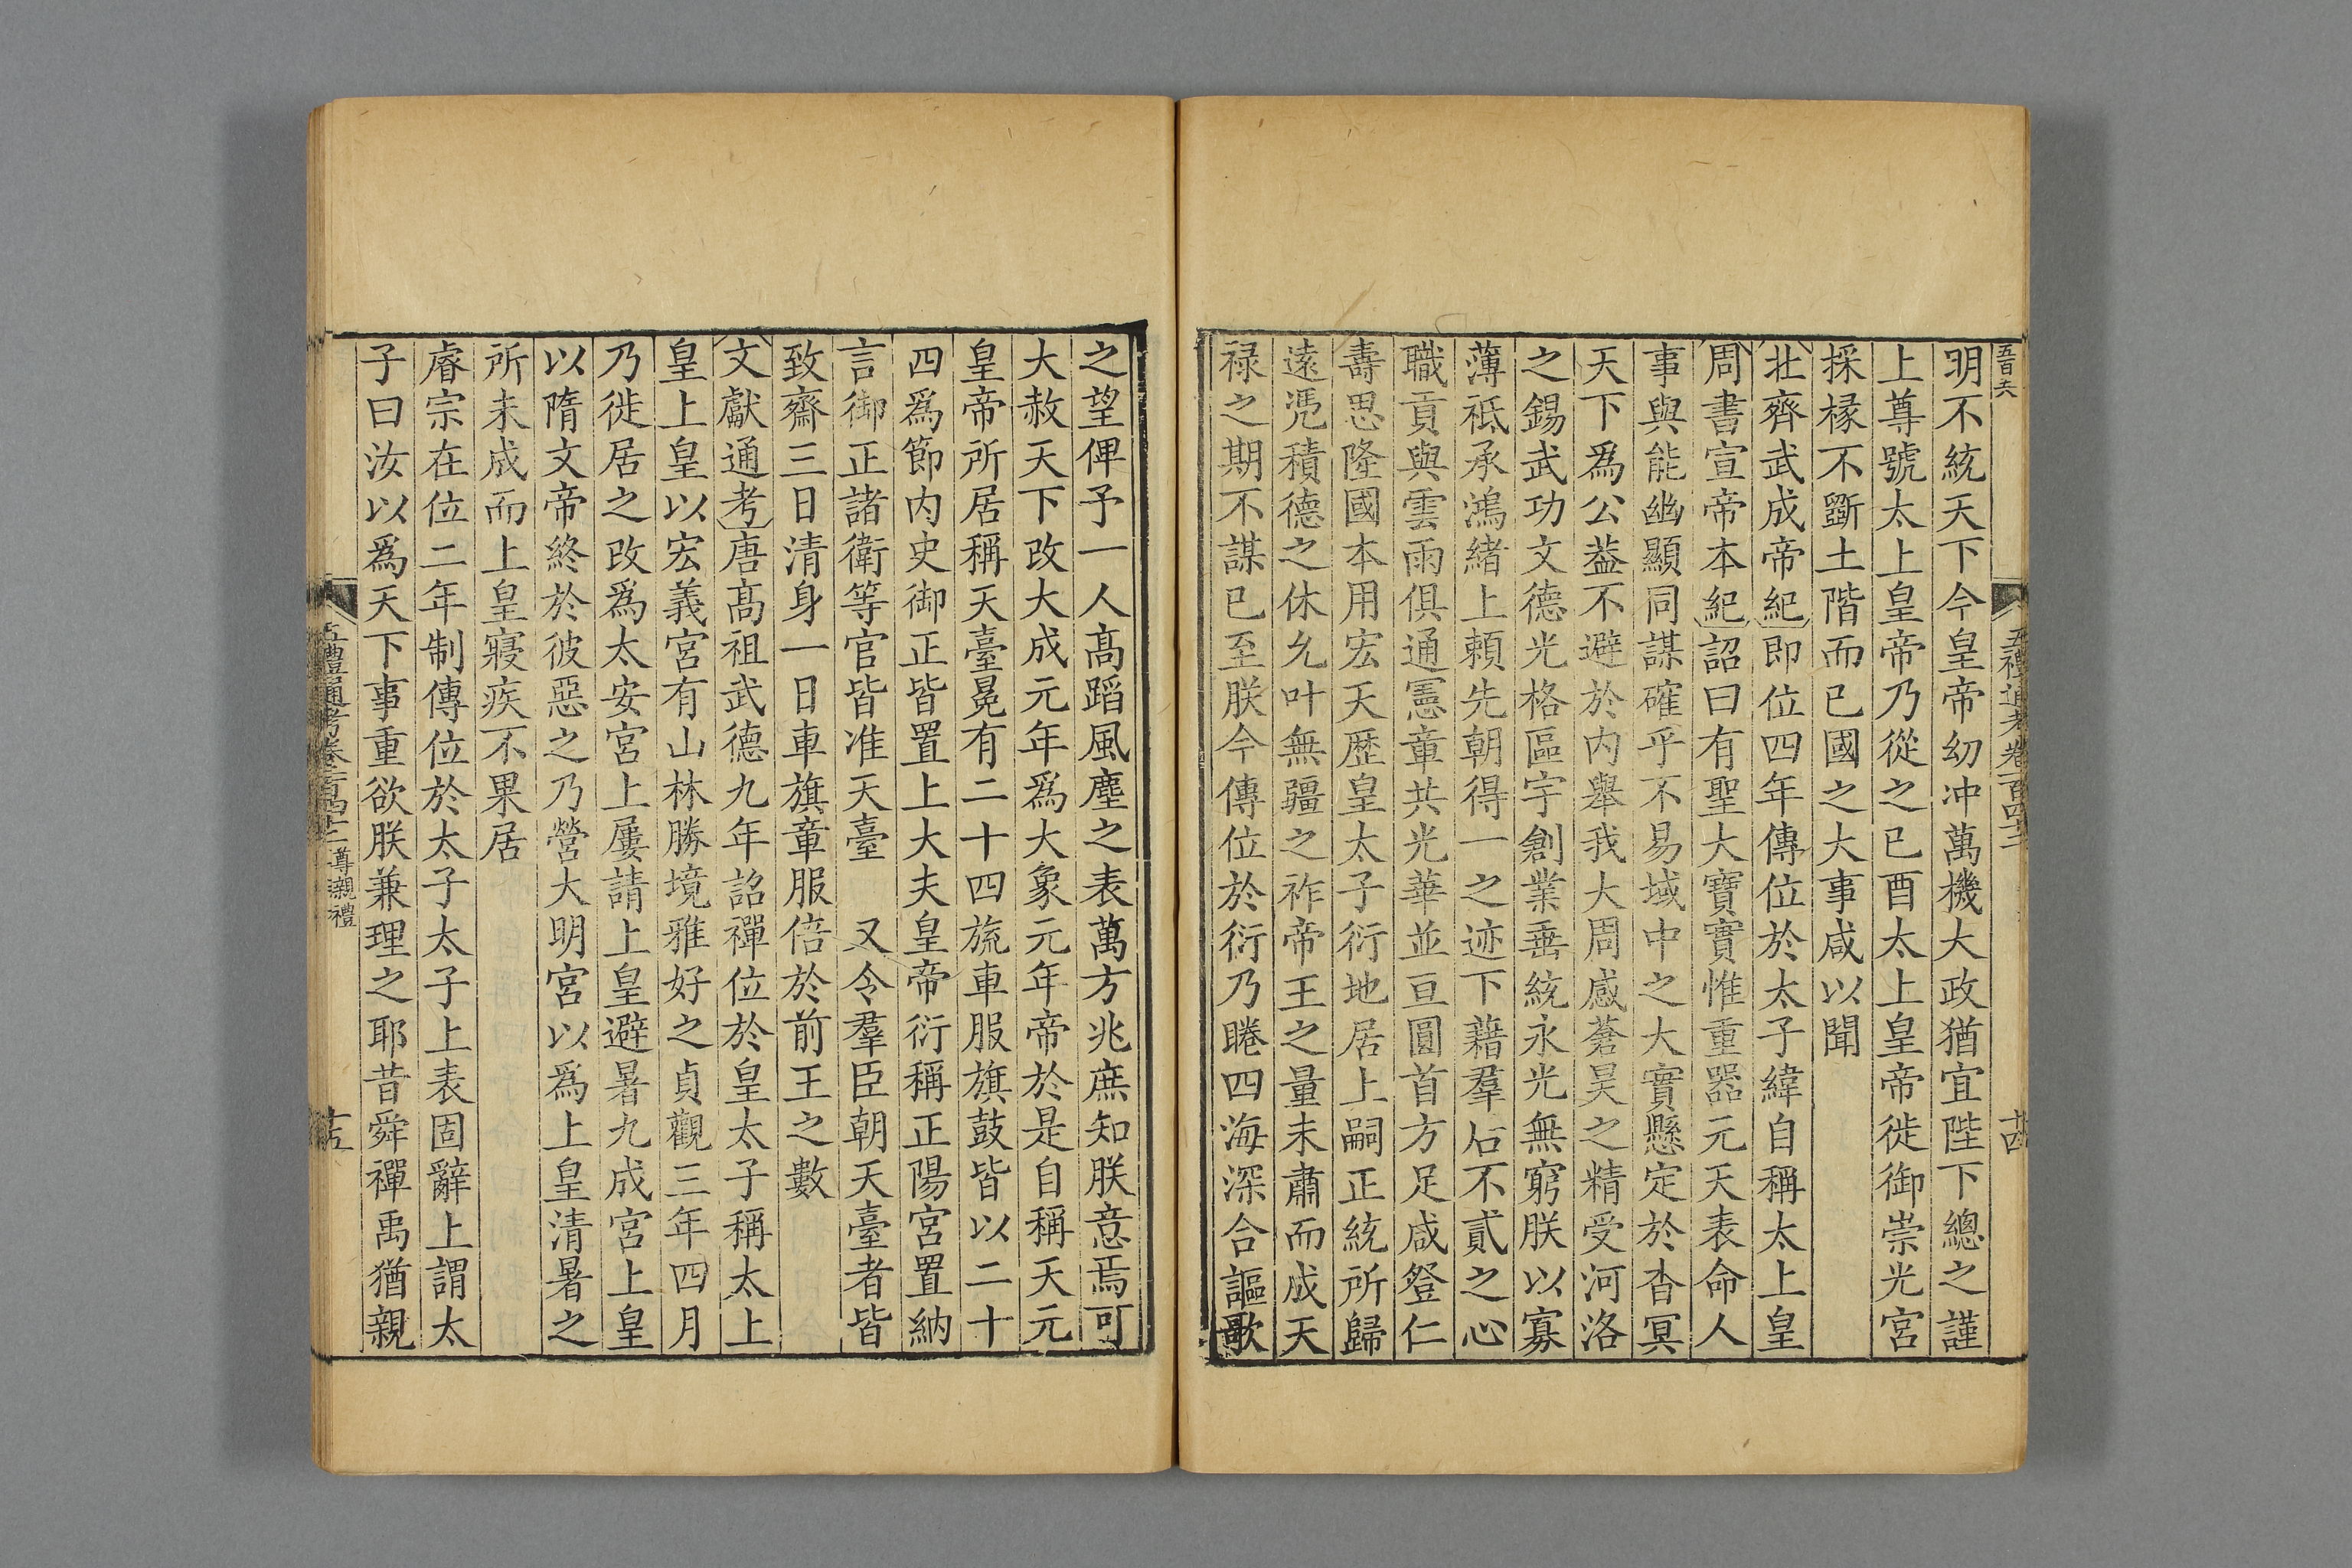 五百六
五禮通考卷一百四十二
十四
明不統天下今皇帝幼冲萬機大政猶宜陛下總之謹
上尊號太上皇帝乃從之已酉太上皇帝徙御崇光宮
採椽不斵土階而已國之大事咸以聞
北齊武成帝紀即位四年傳位於太子緯自稱太上皇
周書宣帝本紀詔曰有聖大寶實惟重器元天表命人
事與能幽顯同謀確乎不易域中之大實懸定於杳冥
天下為公葢不避於内舉我大周感蒼昊之精受河洛
之錫武功文德光格區宇創業垂統永光無窮朕以寡
薄祗承鴻緒上賴先朝得一之迹下藉羣后不貳之心
職貢與雲雨俱通憲章共光華並亘圓首方足咸登仁
壽思隆國本用宏天歷皇太子衍地居上嗣正統所歸
遠凴積德之休允叶無疆之祚帝王之量未肅而成天
禄之期不謀已至朕今傳位於衍乃睠四海深合謳歌
之望俾予一人高蹈風塵之表萬方兆庶知朕意焉可
大赦天下改大成元年為大象元年帝於是自稱天元
皇帝所居稱天臺冕有二十四旒車服旗鼓皆以二十
四爲節内史御正皆置上大夫皇帝衍稱正陽宮置納
言御正諸衛等官皆准天臺　又令羣臣朝天臺者皆
致齋三日清身一日車旗章服倍於前王之數
文獻通考唐髙祖武德九年詔禪位於皇太子稱太上
皇上皇以宏義宮有山林勝境雅好之貞觀三年四月
乃徙居之改爲太安宮上屢請上皇避暑九成宮上皇
以隋文帝終於彼惡之乃營大明宮以爲上皇清暑之
所未成而上皇寢疾不果居
睿宗在位二年制傳位於太子太子上表固辭上謂太
子曰汝以爲天下事重欲朕兼理之耶昔舜禪禹猶親
五禮通考卷一百四十二 尊親禮
十五